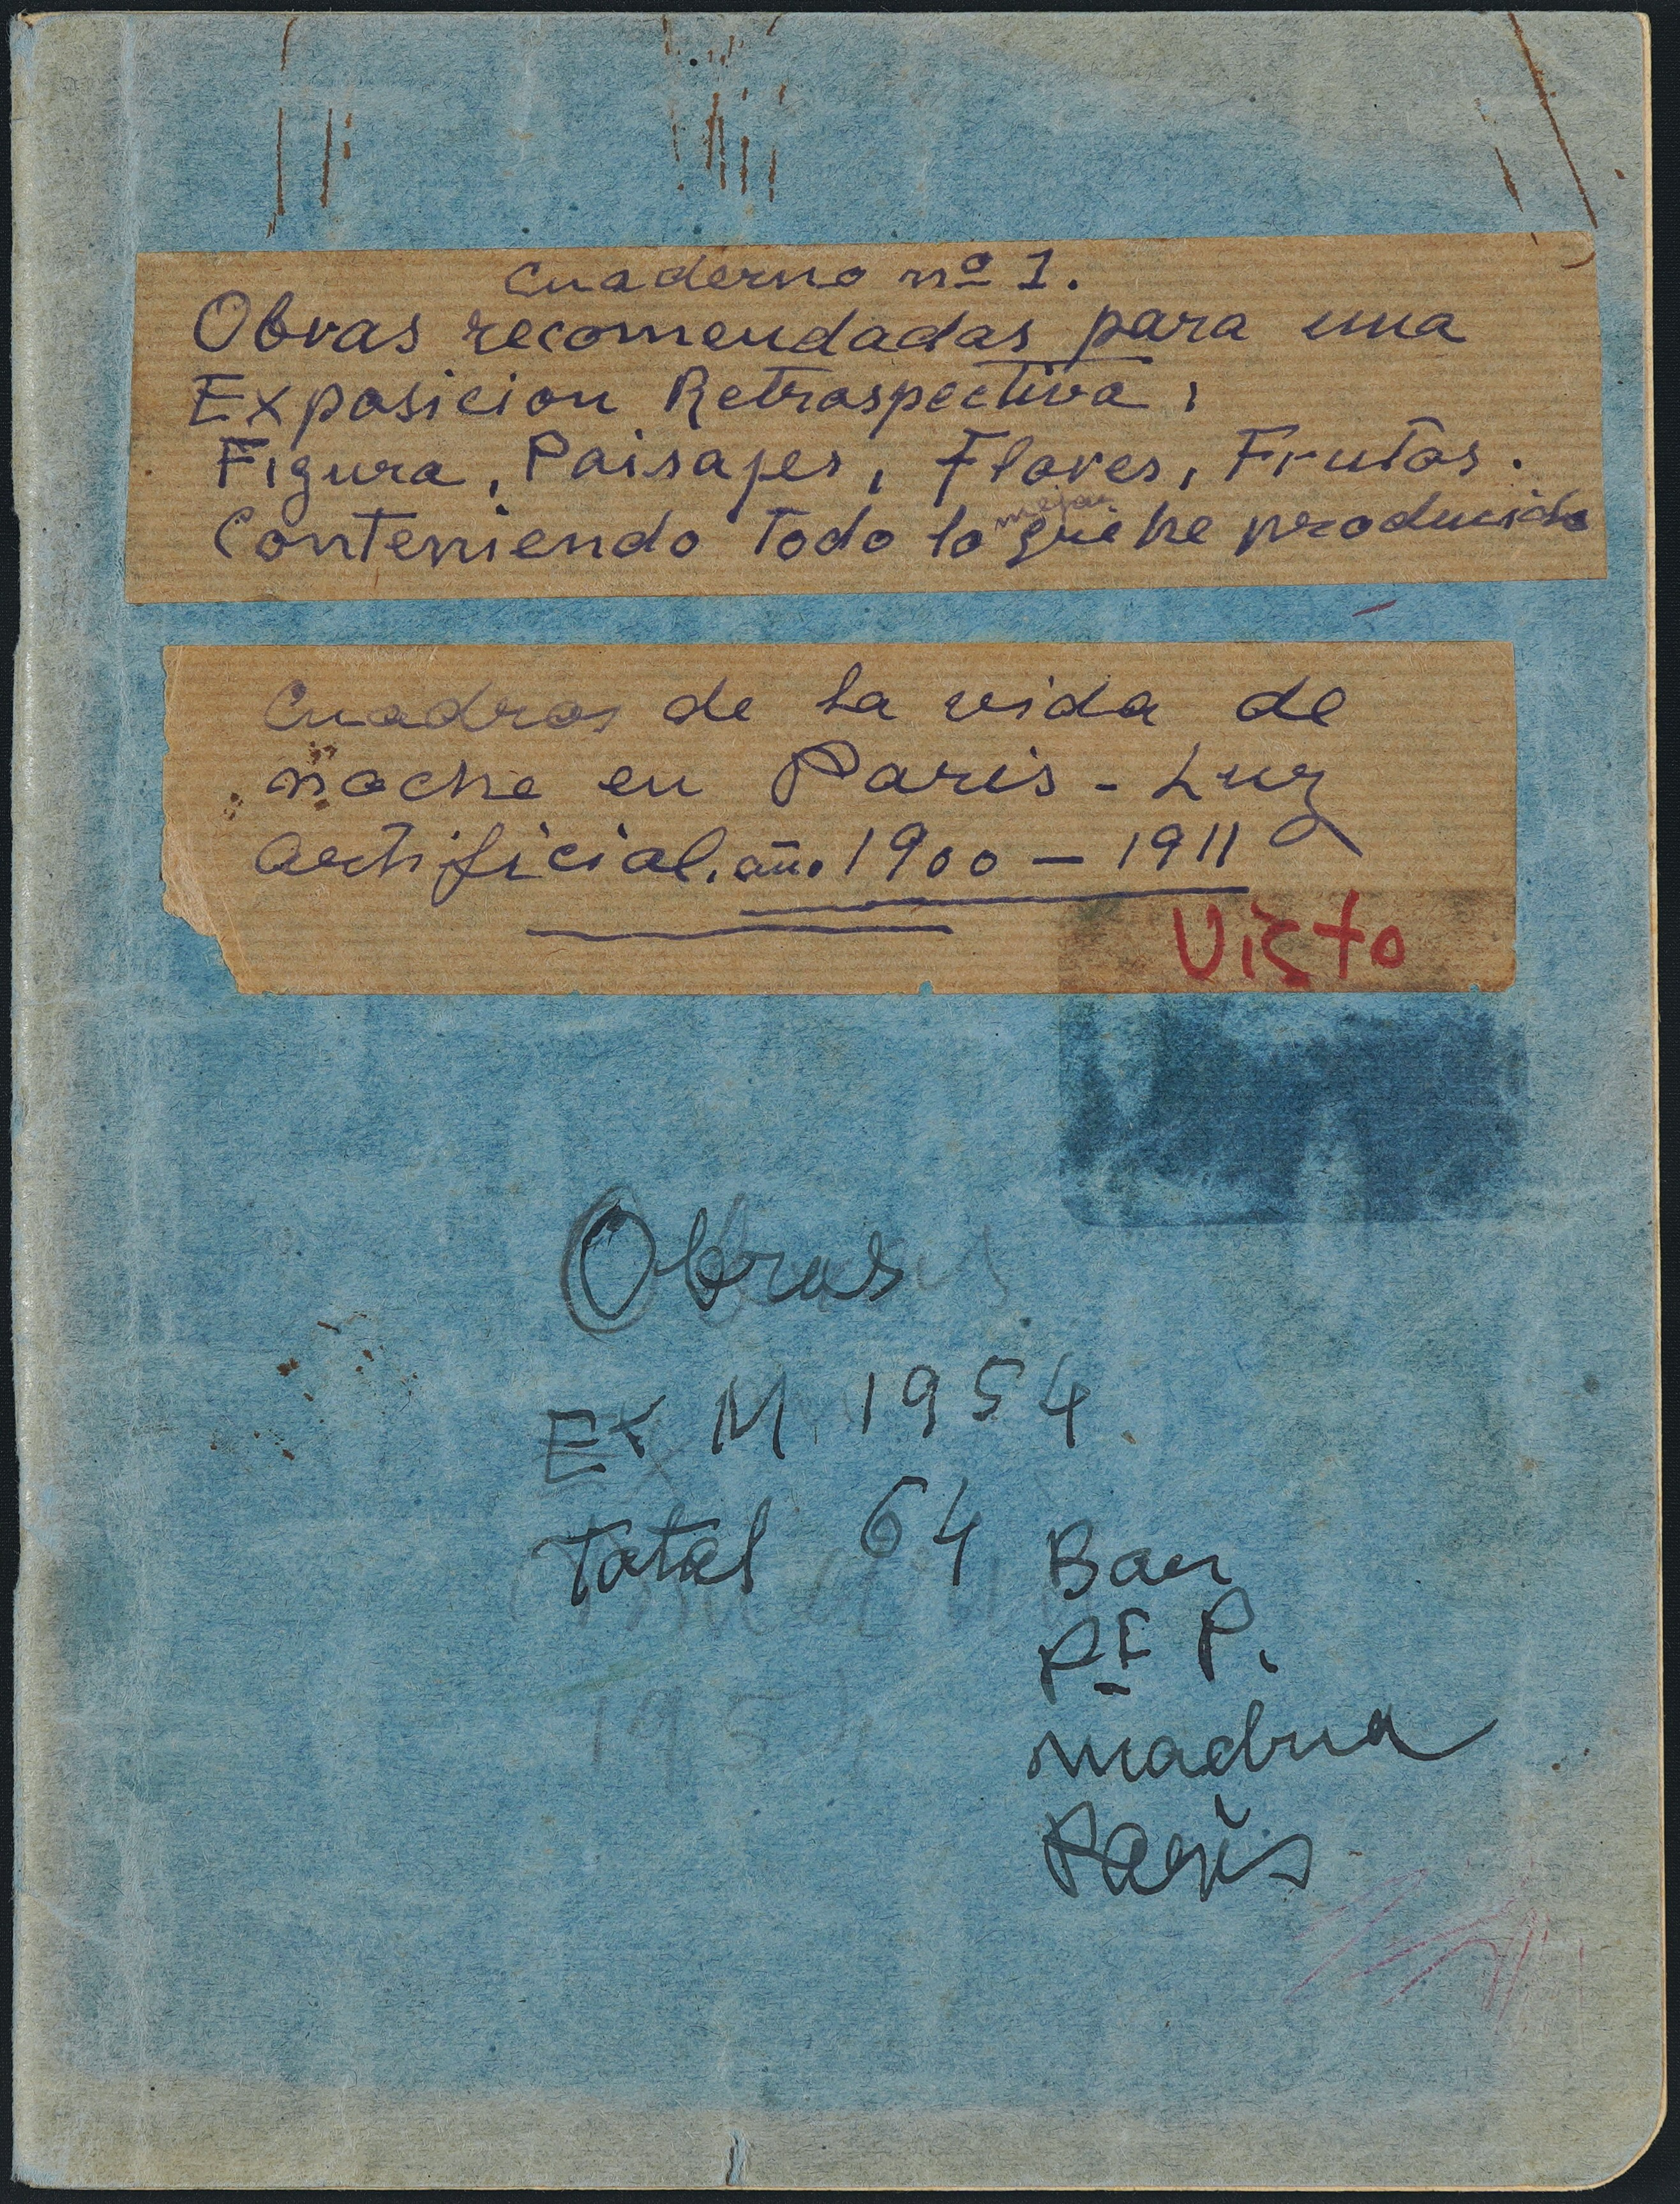 Cuaderno nº 1.
Obras recomendadas para una
Exposicion Retrospectiva,
Figura, Paisajes, Flores, Frutos.
Conteniendo Todo lo mejor que he producido
Cuadros de la vida de
noche en Paris - Luz
artificial. año 1900 - 1911
Visto
Obras
Ex M 1954
Total 64
Bar
P.
Madna
Paris
195